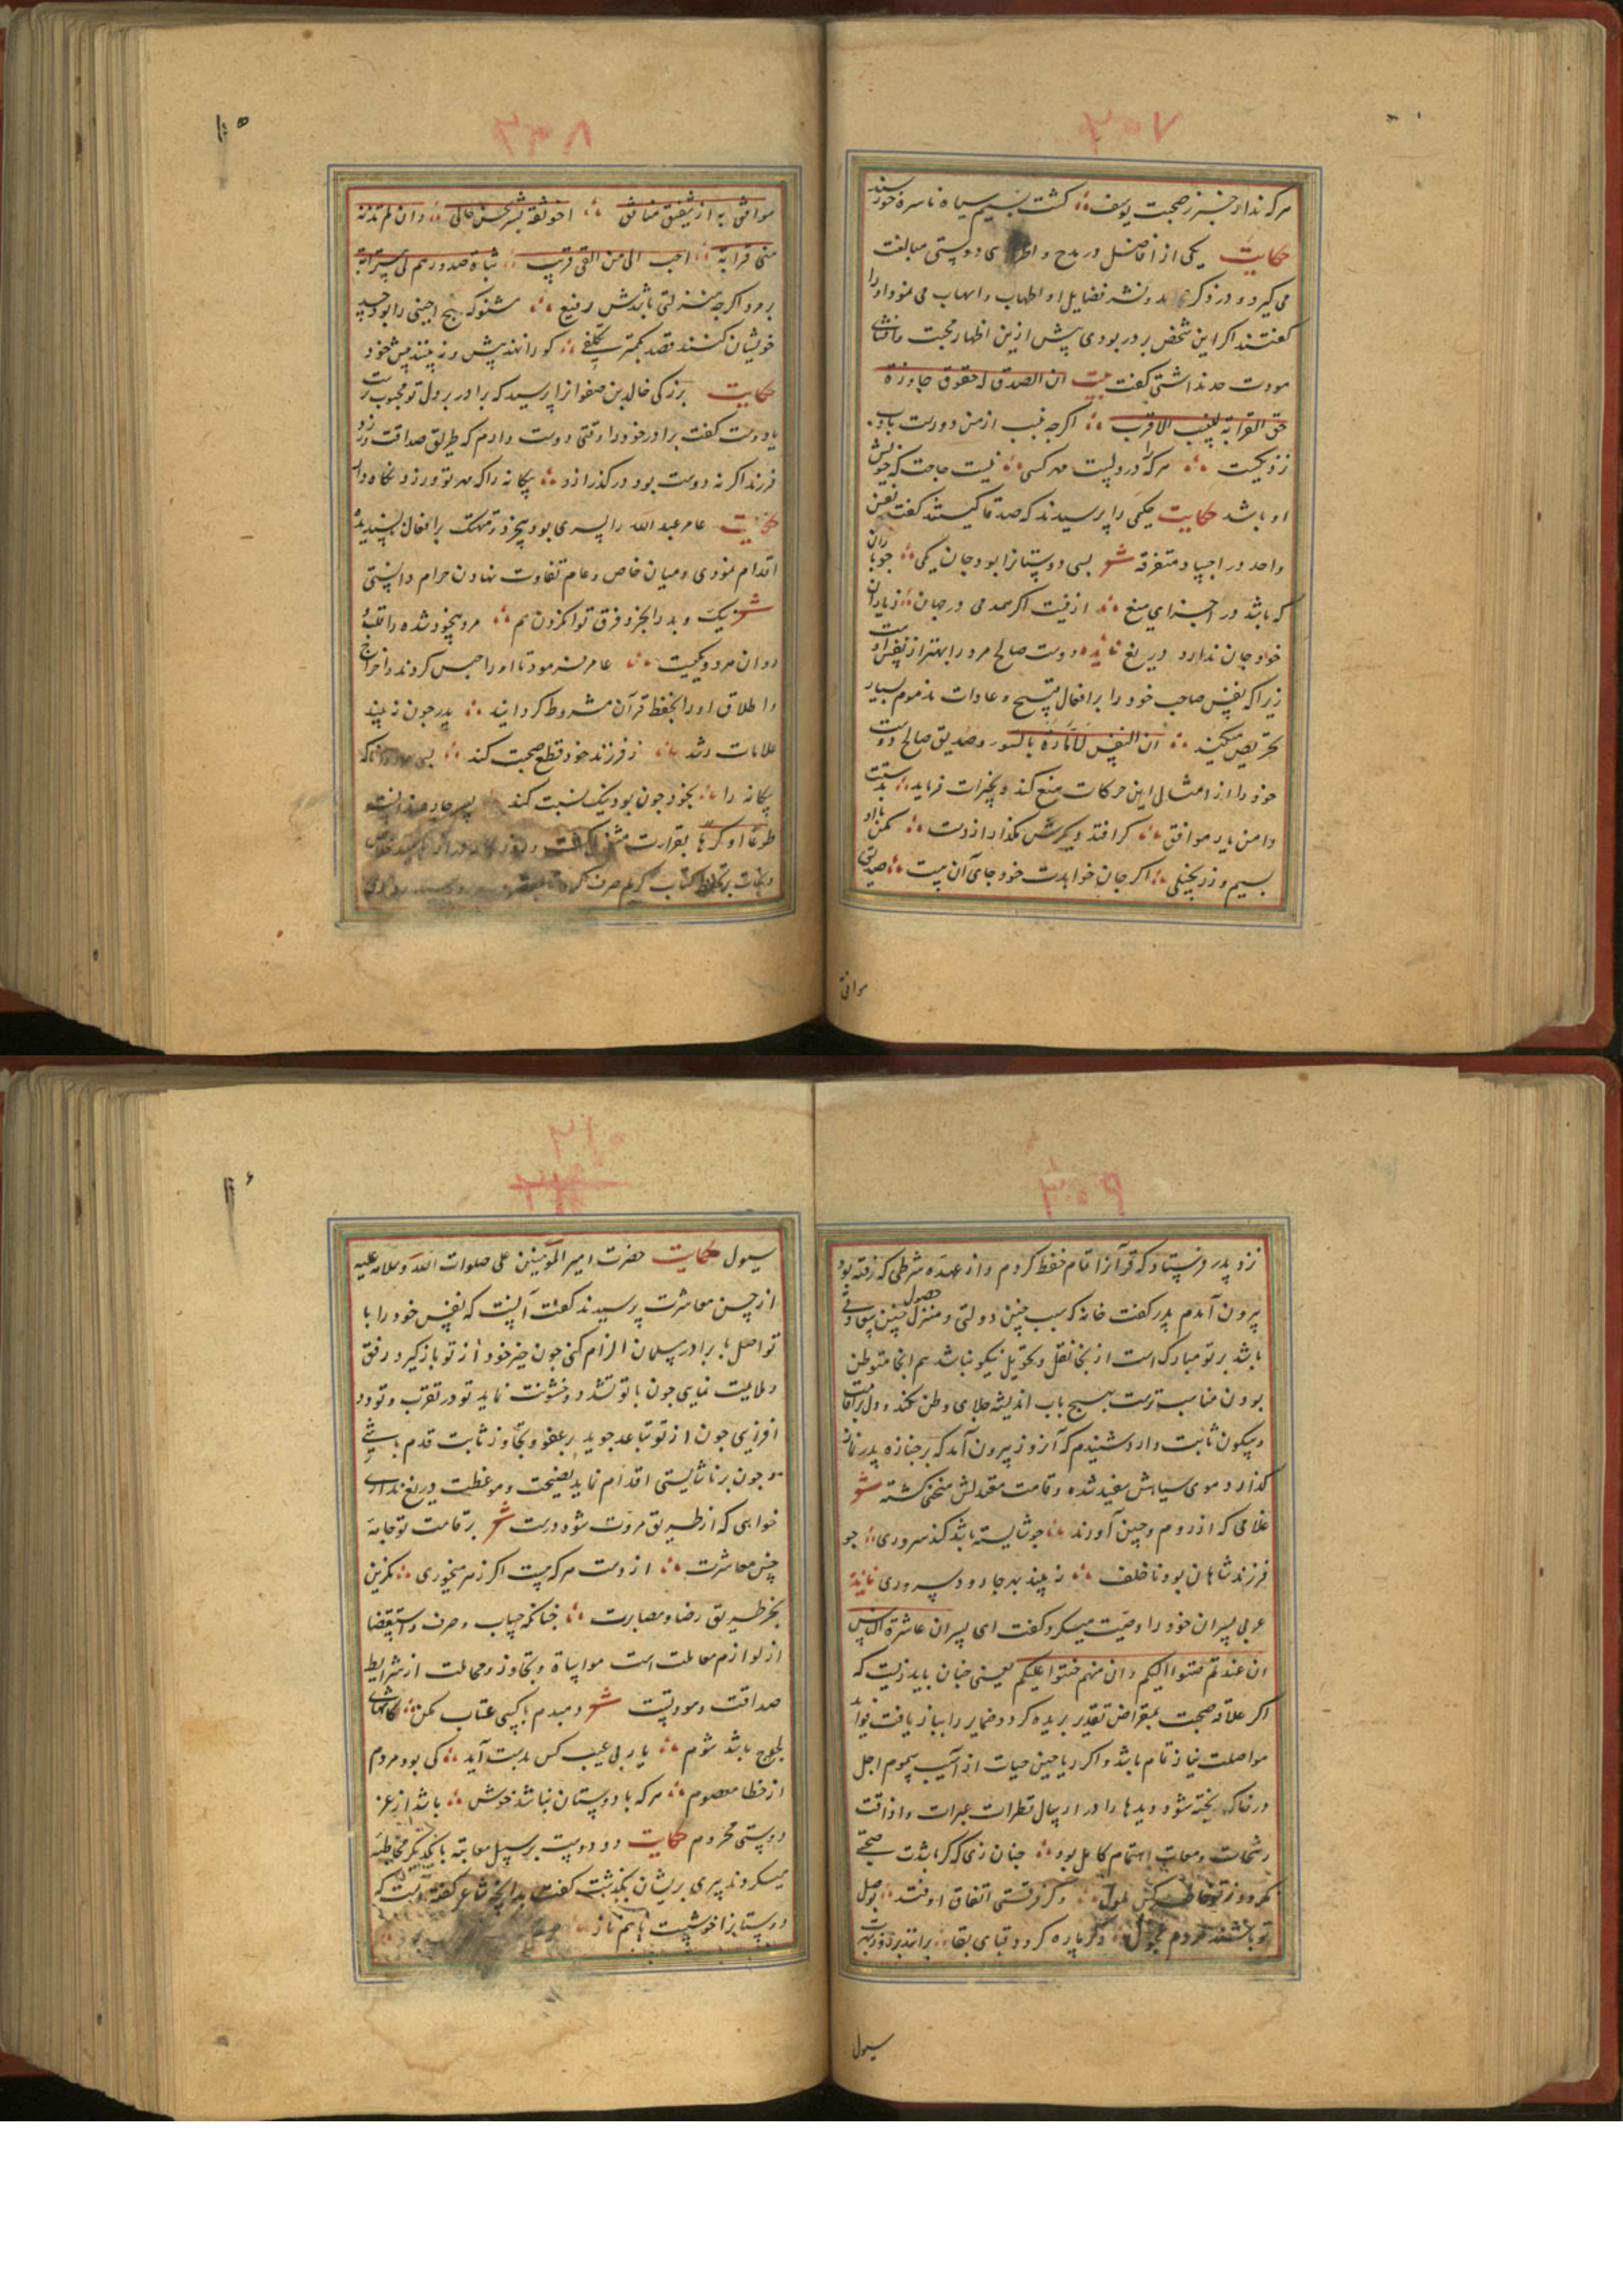 هرکه ندارد خبر ز صحبت یوسف کشت بسیم سیاه ناسره خورسند
حکایت یکی از افاضل در مدح و دوستی مبالغت
می کرد و در ذکر و نشر فضایل او اطناب و اسهاب می نمود او را
کفتند اکر این شخص برادر بودی پیش ازین اظهار محبت و افشای
مودت حد نداشتی کفت بیت ان الصدیق له حقوق جاوزة
حق القرابة للنسیب الاقرب اکرچه نسب از من دورست باو
نزدیکست هرکه را در دلیست مهر کسی نیست حاجت که خویش
او باشد حکایت حکیمی را پرسیدند که صدقا کیستند کفت نفس
واحد در اجساد متفرقه شعر بسی دوستانرا بود جان یکی
که باشد در اجزای منع اکر همدمی در جهان ز یاران
خود جان ندارد دریغ فایده دوست صالح مرد را بهتر از نفس اوست
زیرا که نفس صاحب خود را بر افعال قبیح و عادات مذموم بسیار
تحریص میکند ان النفس لامارة بالسوء و صدیق صالح دوست
خود را از امثال این حرکات منع کند و بخیرات فرماید
دامن یار موافق کر افتد دیکرش مکذار از دست مکن با او
بسیم و زر بخیلی اکر جان خواهدت خود جای آن هست صدیق
موافق
۱۰۵
موافق به از شفیق منافق اخو ثقة یسر بحسن حالی و ان لم تدنه
منی قرابة احب الی من الفی قریب
برمرد اکرچه منزلتی باشدش رفیع مشنو که هیچ اجنبی را بوجه
خویشان کنند قصد بکمتر تکلفی کو را نهند پیش و نه بینند پیش خود
حکایت بزرکی خالد بن صفوانرا پرسید که برادر بر دل تو محبوب ترست
یا دوست کفت برادر خود را وقتی دوست دارم که طریق صداقت ورزد
فرزند اکر نه دوست بود در کذر ازو بیکانه را که مهر تو ورزد نکاه دار
حکایت عامر عبد الله را پسری بود بیخرد و متهتک بر افعال ناپسندیده
اقدام نمودی و میان خاص و عام تفاوت نهادن حرام دانستی
شعر نیک و بد را بخرد فرق توان کردن هم مرد بیخود شده را
عامر بفرمود تا او را حبس کردند و اخراج
و اطلاق او را بحفظ قرآن مشروط کردانید پدر چون نه بیند
علامات رشد ز فرزند خود قطع صحبت کند
بیکانه را بخود چون بود نیک نسبت کند پسر چاره ندانست
طوعا او کرها بقرات مشغول کشت
کتاب کریم صرف کرد
نزد پدر فرستاد که قرآنرا تمام حفظ کردم و از عهده شرطی که رفته بود
بیرون آمدم پدر کفت خانه که سبب چنین دولتی و حصول منزل چنین سعادتی
باشد بر تو مبارک است از آنجا نقل و تحویل نیکو نباشد هم آنجا متوطن
بودن مناسبترست بهیچ باب اندیشه جلای وطن نکند و دل بر اقامت
و سکون ثابت دارد شنیدم که آنروز بیرون آمد که بر جنازه پدر نماز
کذارد و موی سیاهش سفید شده و قامت معتدلش منحنی کشته شعر
غلامی که از روم و چین آورند چو شایسته باشد کند سروری چو
فرزند شاهان بود ناخلف نه بیند بهر جا رود سروری فایده
عربی پسران خود را وصیت میکرد و کفت ای پسران عاشروا الناس
ان عندتم حنوا الیکم و ان متم حنوا علیکم یعنی چنان باید زیست که
اکر علاقه صحبت بمقراض تقدیر بریده کردد ضمایر را بباز یافت فواید
مواصلت نیاز تمام باشد و اکر ریاحین حیات از آسیب سموم اجل
در خاک ریخته شود دیدها را در ارسال قطرات عبرات و اذاقت
رشحات دمعات اهتمام کامل بود چنان زی که کر باشدت صحبتی
نکردد ز تو خاطر کس ملول وکر فرقتی اتفاق اوفتد بوصل
تو باشند مردم عجول وکر پاره کردد قبای بقا
سیول
۱۰۶
سیول حکایت حضرت امیر المؤمنین علی صلوات الله و سلامه علیه
از حسن معاشرت پرسیدند کفت آنست که نفس خود را با
تواصل با برادر مسلمان الزام کنی چون خیر خود از تو باز کیرد رفق
و ملایمت نمایی چون با تو تشدد و خشونت نماید تو در تقرب و تودد
افزایی چون از تو تباعد جوید بر عفو و تجاوز ثابت قدم باشی
و چون بر ناشایستی اقدام نماید نصیحت و موعظت دریغ نداری
خواهی که از طریق مروت شود درست شعر بر قامت تو جامه
حسن معاشرت از دست هرکه هست اکر زهر میخوری مکزین
بجز طریق رضا و مصابرت چنانکه حساب و صرف و استقضا
از لوازم معاملت است مواساة و تجاوز و مجاملت از شرایط
صداقت و مودتست شعر همدم با کسی عتاب مکن
لجوج باشد شوم یار بی عیب کس بدست آید کی بود مردم
از خطا معصوم هرکه با دوستان نباشد خوش باشد از عز
دوستی محروم حکایت دو دوست بر سبیل معاتبه با یکدیکر مخاطبه
میکردند پیری بریشان بکذشت کفت شاعر کفته است که
دوستانرا خوشست با هم ناز